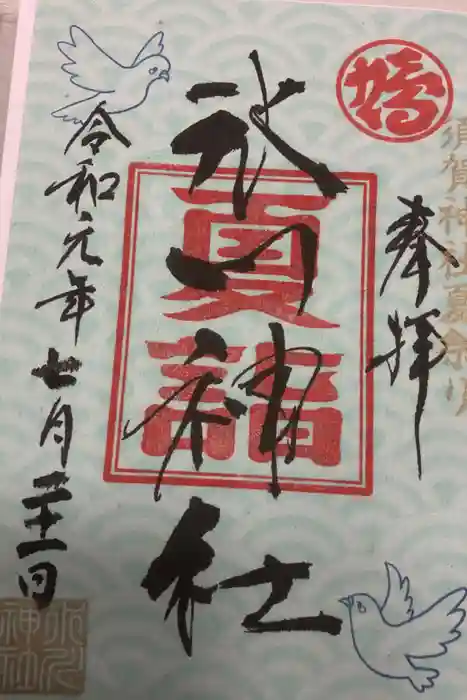 須賀神社夏祭り
奉拝
夏詣
氷川神社
令和元年七月二十一日
氷川
神社